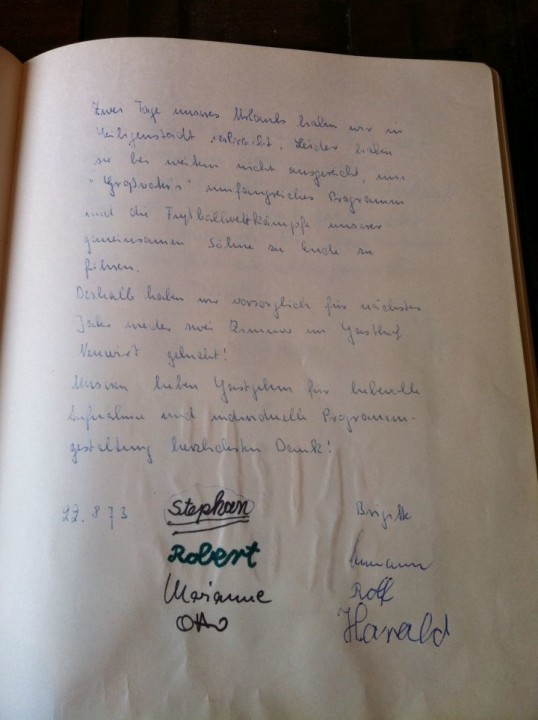 Zwei Tage unseres Urlaubs haben wir in
Heiligenstadt verbracht. Leider haben
sie bei weitem nicht ausgereicht, um
"Großvater's" umfangreiches Programm
und die Fußballwettkämpfe unserer
gemeinsamen Söhne zu Ende zu
führen.
Deshalb haben wir vorsorglich für nächstes
Jahr wieder zwei Zimmer im Gasthof
Neuwirt gebucht!
Unseren lieben Gastgebern für liebevolle
Aufnahme und individuelle Programm-
gestaltung herzlichsten Dank!
22. 8 73
Stephan Brigitte
Robert
Marianne Rolf
Otto Harald